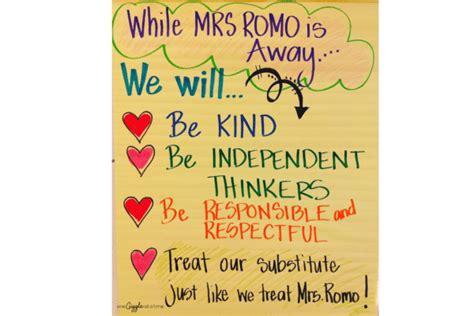 While MRS ROMO is
Away....
We will...
Be KIND
Be INDEPENDENT
THINKERS
Be RESPONSIBLE and
RESPECTFUL
Treat our substitute
just like we treat Mrs. Romo!
one Giggle at a time